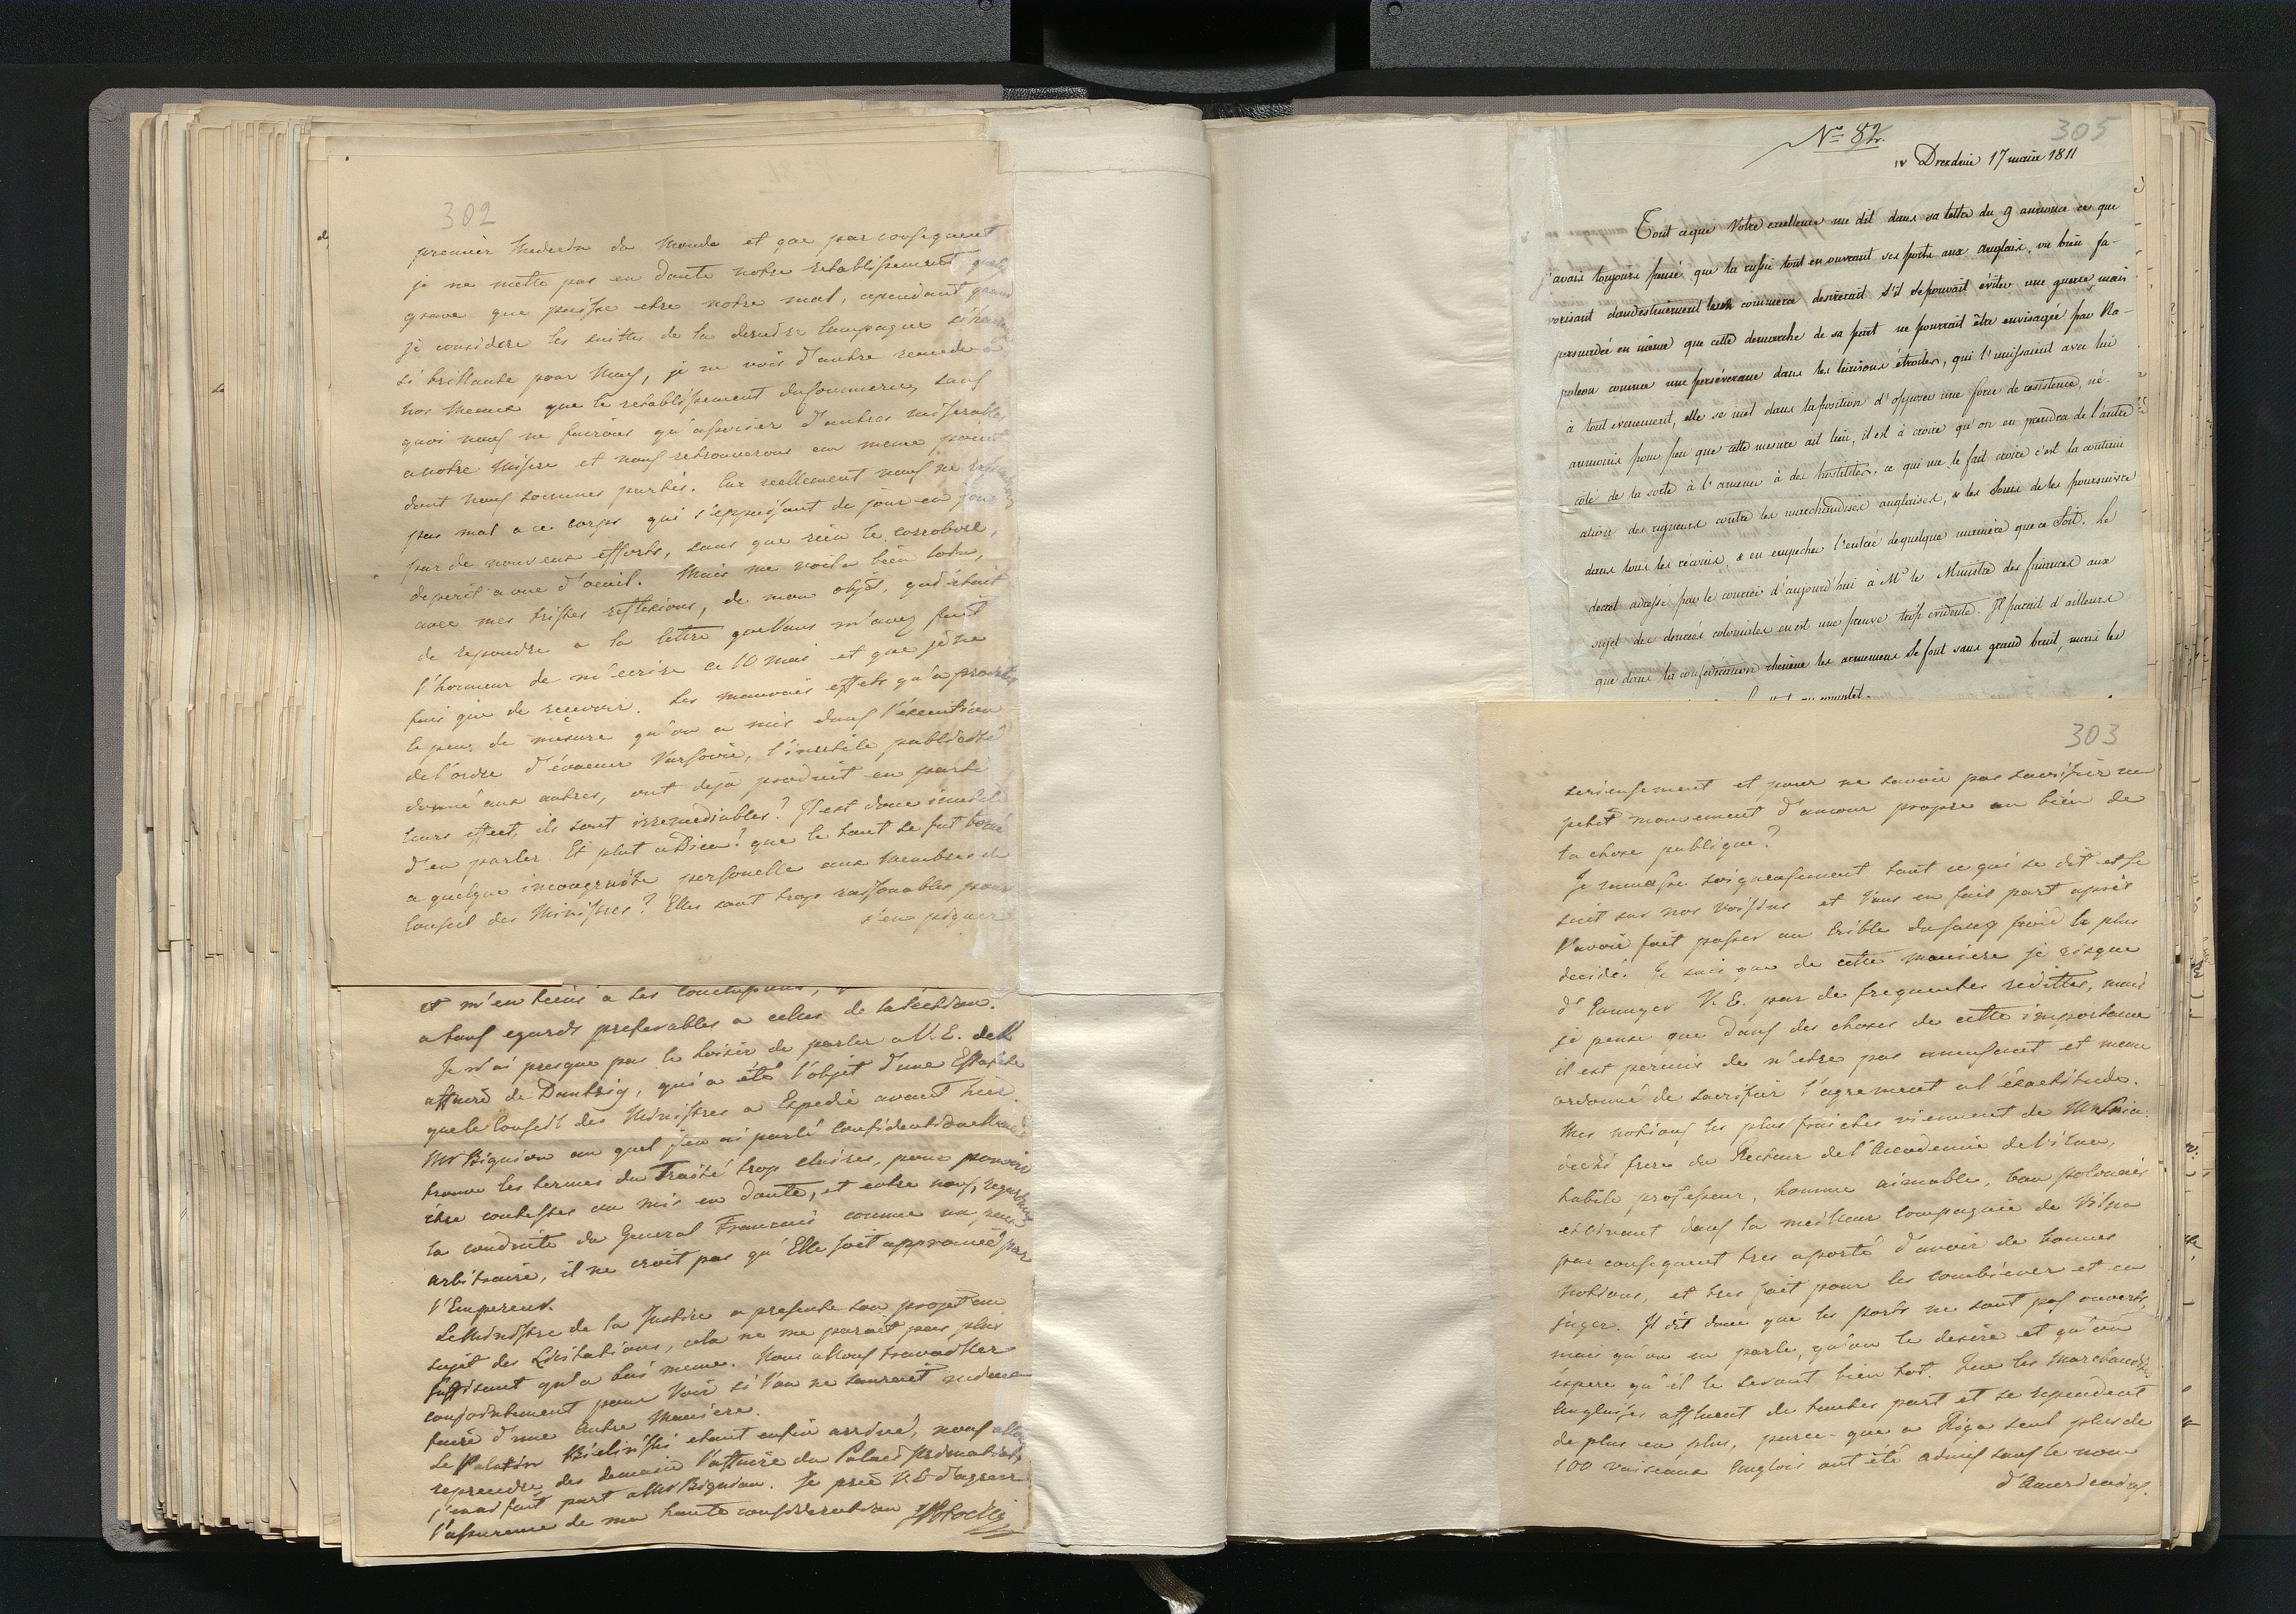 302
premier Medecin du Monde et que par consequent
je ne mette pas en doute notre retablissement quelq
grave que puisse etre notre mal, cependant quand
je considere les suittes de la derniere Campagne
si brillante pour Nous, je ne vois d'autre remede a
nos meaux que le retablissement du Commerce, sans
quoi nous ne ferons qu'associer d'autres miserables
a notre Misere et nous retrouverons au meme point
dont nous sommes partis. Car reellement nous ne
pas mal a ce corps qui s'epuisant de jour en jour
par de nouveaux efforts, sans que rien le corrobore,
deperit a vue d'oeuil. Mais me voila bien loin,
avec mes tristes reflexions, de mon objêt, qui étoit
de repondre a la lettre que Vous m'avez fait
l'honneur de m'écrire ce 10 mai et que je ne
fais que de recevoir. Les mauvais effets qu'a produits
le peu de mesure qu'on a mis dans l'éxecution
de l'ordre d'évacuer Varsovie, l'inutile publicité
donné aux autres, ont deja produit en partie
leurs effect, ils sont irremediables? Il est donc inutile
d'en parler. Et plut a Dieu! que le tout se fut borné
a quelque incongruité personelle aux Membres du
Conseil des Ministres? Elles sont trop raisonables pour
s'en piquer
et m'en tiens a ses
a tous egards preferables a celles de la section.
Je n'ai presque pas le loisir de parler a V. E. de l'
affaire de Dantzig, qui a été l'objet d'une Estafette
que le Conseil des Ministres a Expedié avant hier.
Mr Bignion au quel j'en ai parlé confidentiellement
trouve les termes du Traité trop claires, pour pouvoir
être contestés ou mis en doute, et entre nous, regardant
la conduite du General Francais comme un peu
arbitraire, il ne croit pas qu'Elle soit approuvée par
l'Empereur.
Le Ministre de la Justice a presenté son projet au
sujet des Licitations, cela ne me parait pas plus
suffisant qu'a lui meme. Nous allons travailler
conjointement pour Voir si l'on ne sauroit rediger
faire d'une autre Maniere.
Le Palatin Bielinski etant enfin arrivé, nous allons
reprendre des demain l'affaire du Palais Primatial,
j'en ai fait part a Mr Bignion. Je prie V. E. d'agréer
l'assurence de ma haute consideration
305
No 82.
Dresden 17 1811
Tout ce que Votre excellence me dit dans sa lettre du 9 annonce ce que
j'avais toujours pensé que la russie tout en ouvrant ses ports aux Anglais, ou bien fa-
vorisant clandestinement leur commerce desirerait s'il se pouvait éviter une guerre, mais
persuadée en même que cette demarche de sa part ne pourrait être envisagée par Na-
poleon comme une perséverance dans les liaisons étroites, qui l'unissaient avec lui
à tout evenement, elle se met dans la position d'opposer une force de resistence, né-
anmoins pour peu que cette mesure ait lieu, il est à croire qu'on en prendra de l'autre
côté de la sorte à l'amener à des hostilités, ce qui me le fait croire c'est la continu
ation des rigueurs contre les marchandises anglaises, & les Soins de les poursuivre
dans tous les récoins, & en empecher l'entrée de quelque manière que ce Soit. Le
decret adressé par le courrier d'aujourd'hui à Mr le Ministre des finances aux
sujet des denrées coloniales en est une preuve trop evidente. Il parait d'ailleurs
que dans la confédération rhénane les armemens se font sans grand bruit, mais les
303
serieusement et pour ne savoir pas sacrifier un
petit mouvement d'amour propre au bien de
la chose publique?
Je ramasse soigneusement tout ce qui se dit et se
sait sur nos Voisins et Vous en fais part après
l'avoir fait passer au Crible du sang froid le plus
decidé. Je sais que de cette maniere je risque
d'Ennuyer V. E. par de frequentes redittes, mais
je pense que dans des choses de cette importance
il est permis de n'etre pas amusant et meme
ordonné de sacrifier l'agrement a l'éxactitude.
Mes notions les plus fraiches viennent de Mr Snia-
decki frere du Recteur de l'Academie de Vilna,
habile professeur, homme aimable, bon polonais
et vivant dans la meilleur Compagnie de Vilna
par consequent tres aporté d'avoir de bonnes
notions, et tres fait pour les combiner et en
juger. Il dit donc que les ports ne sont pas ouverts,
mais qu'on en parle, qu'on le desire et qu'on
éspere qu'il le seront bien tot. Que les Marchandises
Anglaises affluent de toutes part et se rependent
de plus en plus, parce-que a Riga seul plus de
100 vaisseaux Anglois ont été admis sous le nom
d'Americains.